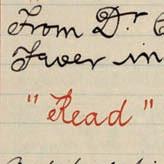 From Dr.
Faver in
"Read"